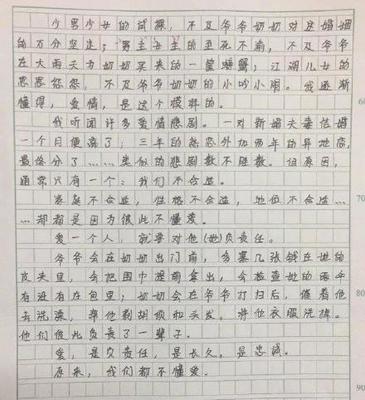 少男少女的试探，不及爷爷奶奶对这婚姻
的万分坚定；男主女主的至死不渝，不及爷爷
在大雨天为奶奶买来的一篮螃蟹；江湖儿女的
恩恩怨怨，不及爷爷奶奶的小吵小闹。我逐渐
懂得，爱情，是这个模样的。
我听闻许多爱情悲剧。一对新婚夫妻结婚
一个月便离了；三年的热恋外加两年的异地恋，
最后分了……类似的悲剧数不胜数。但原因，
通常只有一个：我们不合适。
家庭不合适，性格不合适，地位不合适……
……却都是因为彼此不懂爱。
爱一个人，就要对他(她)负责任。
爷爷会在奶奶出门前，多塞几张钱在她的
皮夹里，会把围巾提前拿出，会检查她的雨伞
有没有在包里；奶奶会在爷爷打扫后，催着他
去洗澡，帮他剃胡须和头发，将他衣服洗掉。
他们彼此负责了一辈子。
爱，是负责任，是长久，是忠诚。
原来，我们都不懂爱。
70
80
90